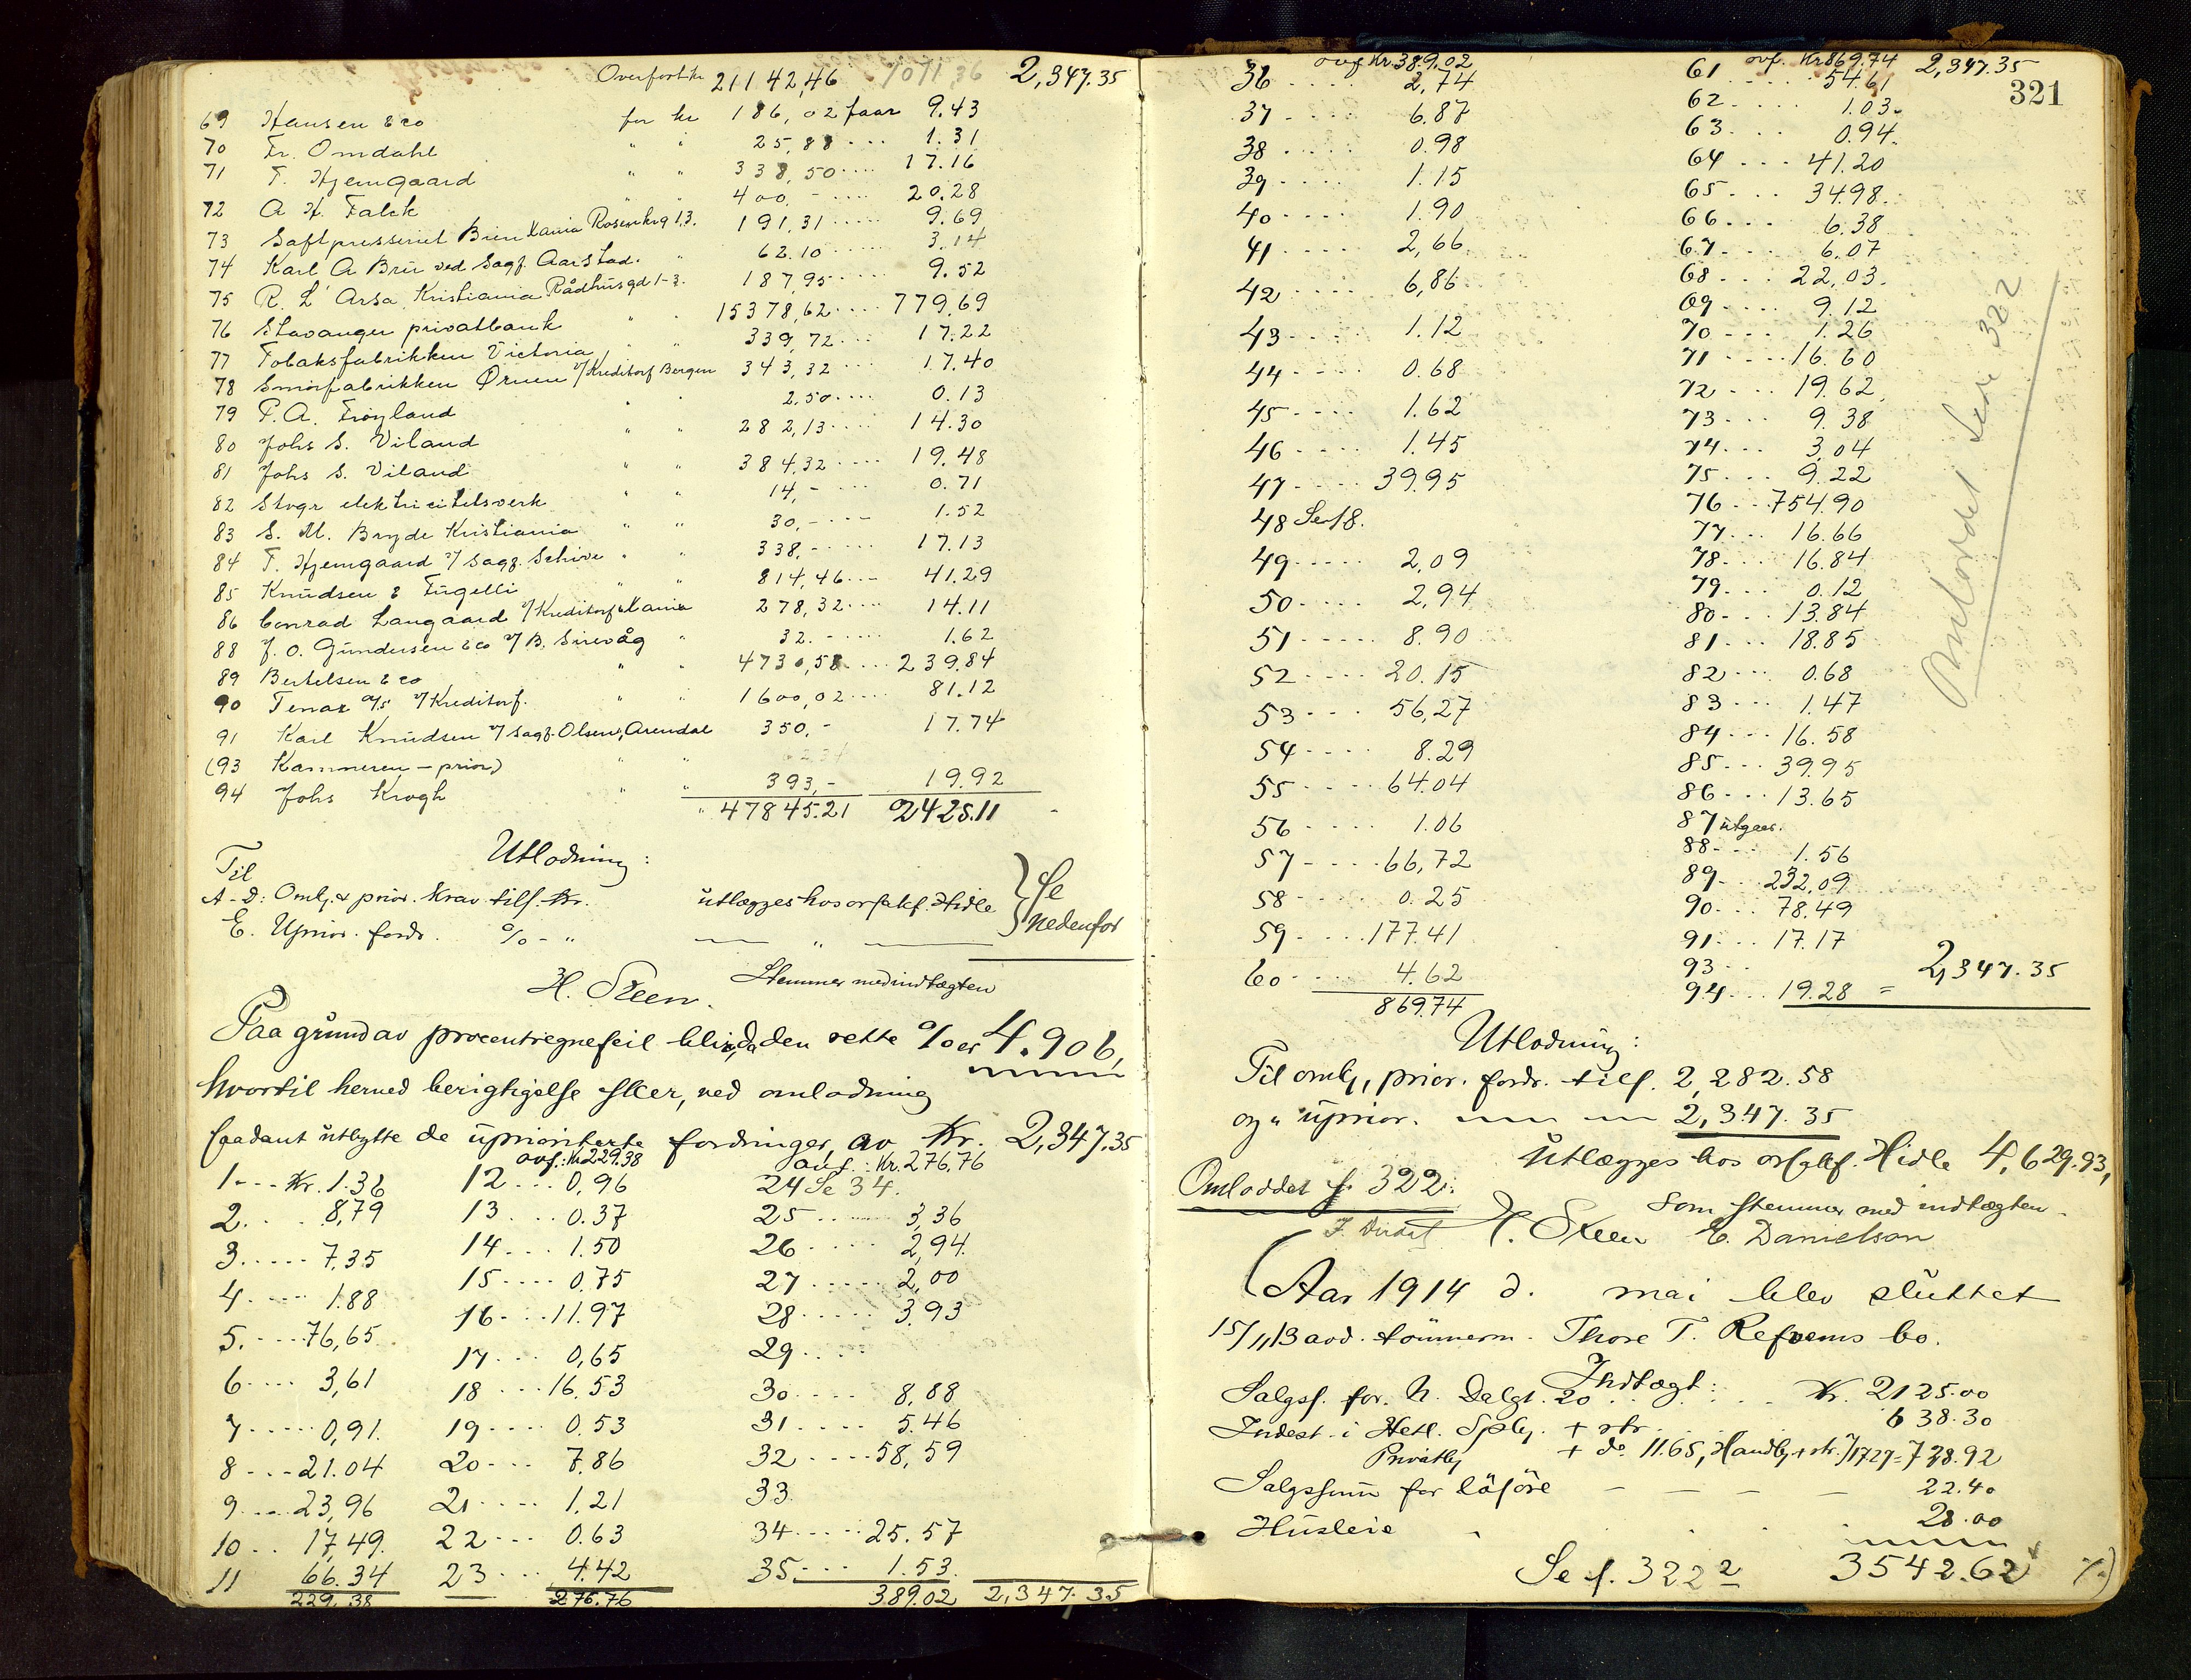 Overført kr 21142,46 1071,36 2,347.35
69 Hansen & co for kr 186,02 faar 9.43
70 Fr. Omdahl " " 25,88 ... 1.31
71 F. Hjemgaard " " 338,50 .... 17.16
72 A H. Falck " " 400,- .... 20.28
73 Saftpresseriet Brim Kania Rosenkrg 13. 191,31 ..... 9.69
74 Karl A Bru ved Sagf. Aarstad. " 62.10 ..... 3.14
75 R. L' Arsa Kristiania Rådhusgd 1-3. 187,95 ..... 9.52
76 Stavanger privatbank " " 15378,62 .... 779,69
77 Tobaksfabrikken Victoria " " 339,72 ... 17.22
78 Smørfabrikken Ørnen v/Kreditorf Bergen 343,32 .... 17.40
79 P.A. Frøyland " " 2.50 .... 0.13
80 Johs S. Viland " " 282,13 .... 14.30
81 Johs S. Viland " " 384,32 .... 19.48
82 Stvgr elektricitetsverk " " 14,- .... 0.71
83 S. M. Bryde Kristiania " " 30,- .... 1.52
84 F. Hjemgaard v/ sagf. Schive " " 338,- .... 17.13
85 Knudsen & Fugelli " " 814,46 ... 41.29
86 Conrad Langaard v/Kreditorf Kania 278,32 .... 14.11
88 J. O. Gundersen & co v/ B. Sirevåg " 32.- ..... 1.62
89 Bertelsen & co " " 4730,58 .... 239.84
90 Tenax A/S v/Kreditorf. " " 1600,02 .... 81.12
91 Karl Knudsen v/ sagf. Olsen, Arendal 350,- 17.74
(93 Kæmneren – prior) " "
94 Johs Krogh " " 393,- 19.92
" 47845.21 2425.11
Utlodning:
Til
A-D: Omk. & prior. Krav tils. Kr. utlægges hos orsakf. Hidle } Se
E. Uprior. fordr. % - " — " — } nedenfor
H. Steen. Stemmer med indtægten
Paa grund av procentregnefeil blir, da den rette % er 4.906,
hvortil herved berigtigelse sker, ved omlodning
saadant utbytte de uprioriterte fordringer av Kr. 2,347.35
ovf.: Kr 229.38 ovf.: Kr. 276.76
1 - .. Kr. 1.36 12 ... 0,96 24 Se 34.
2. . . . 8,79 13 .... 0.37 25 ....... 3,36
3. .... 7,35 14 ... 1.50 26 ..... 2,94
4. .... 1.88 15 .... 0.75 27 ..... 2,00
5. .... 76,65 16 ... 11.97 28 ..... 3,93
6 .... 3,61 17 ... 0,65 29 ....
7 ..... 0,91. 18 ... 16.53 30 .... 8,88
8 ... 21.04 19 .... 0.53 31 .... 5.46
9 .... 23,96 20 ... 7.86 32 ..... 58,59
10 .. 17,49. 21 .... 1.21 33
11 66.34 22 ... 0.63 34 ..... 25.57
229.38 23 ... 4.42 35 .... 1.53.
276.76 389.02 2,347.35
321
ovf Kr 389.02
36 .... 2,74
37 .... 6.87
38 ..... 0.98
39 .... 1.15
40 .... 1.90
41 .... 2,66
42 .... 6,86
43 .... 1.12
44 .... 0.68
45 .... 1.62
46 .... 1.45
47 .... 39.95
48 Se 18.
49 ..... 2,09
50 .... 2,94
51 ..... 8.90
52 .... 20.15
53 ... 56,27
54 .... 8.29
55 .... 64.04
56 .... 1.06
57 .... 66,72
58 .... 0.25
59 .... 177.41
60 .... 4.62
869.74
ovf. Kr 869.74 2,347.35
61 .... 54.61
62 .... 1.03
63 ... 0.94
64 ... 41.20
65 ... 34.98
66 ... 6.38
67 ... 6.07
68 ... 22,03
69 .... 9.12
70 ... 1.26
71 .... 16.60
72 ... 19.62
73 ... 9.38
74 ... 3,04
75 ... 9.22
76 ... 754.90
77 ... 16.66
78 ... 16.84
79 ... 0.12
80 ... 13.84
81 ... 18.85
82 ... 0.68
83 ... 1.47
84 ... 16.58
85 ... 39.95
86 ... 13.65
87 utgaar.
88 ... 1.56
89 ... 232,09
90 ... 78.49
91 ... 17.17
93 ..
94 ... 19.28 = 2,347.35
Omloddet Side 322
Utlodning:
Til omk, prior. fordr. tils. 2,282.58
og " uprior. — " — " 2,347.35
utlægges hos orsakf. Hidle 4,629.93,
Omloddet s. 322. som stemmer med indtægten.
H. Steen E. Danielsen
(Aar 1914 d. mai blev sluttet
15/11 13 avd. tømmerm. Thore T. Refvems bo.
Indtægt:
Salgss. for N. Dalgt. 20 ... Kr. 2125.00
Indest. i Hetl. Spby. + rtr. 638.30
Privatby + do 11.65, Handby + rtr. 717.27 = 728.92
Salgssum for løsøre — — — — 22.40
Husleie . . . . 28.00
Se s. 322 2 3542.62 %)